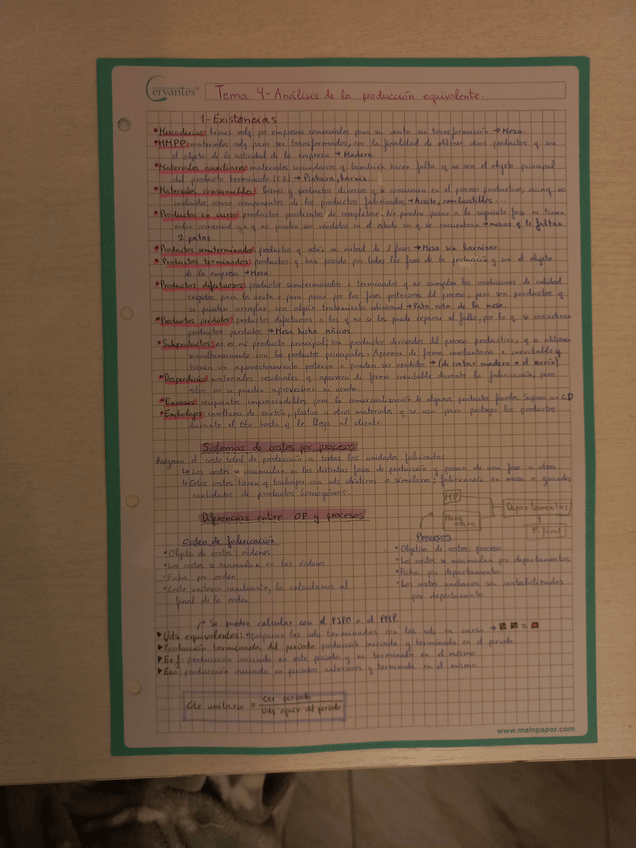 Cervantes
Tema 4- Análisis de la producción equivalente.
1- Existencias
• Mercaderías: bienes adq. por empresas comerciales para su venta sin transformación → Mesa
• MMPP: materiales adq para ser transformados, con la finalidad de obtener otros productos q son
el objeto de la actividad de la empresa → Madera
• Materiales auxiliares: materiales secundarios q también hacen falta q no son el objeto principal
del producto terminado → Pintura, barniz
• Materiales consumibles: bienes y productos diversos q se consumen en el proceso productivo, aunq no
incluidos como componentes de los productos fabricados → Aceite, combustibles.
• Productos en curso: productos pendientes de completar. No pueden pasar a la siguiente fase no tienen
valor comercial ya q no pueden ser vendidos en el estado en q se encuentran → mesas q le faltan
2 patas
• Productos semiterminados: productos q están en mitad de 2 fases → Mesa sin barnizar
• Productos terminados: productos q han pasado por todas las fases de la producción y son el objeto
de la empresa → Mesa
• Productos defectuosos: productos semiterminados o terminados q no cumplen las condiciones de calidad
exigidas para la venta o para pasar por las fases posteriores del proceso, pero son productos q
se pueden arreglar con algún tratamiento adicional → Pata rota de la mesa
• Productos perdidos: productos defectuosos a los q no se les puede reparar el fallo, por lo q se consideran
productos perdidos → Mesa hecha añicos
• Subproductos: no es mi producto principal, son productos derivados del proceso productivo, q se obtienen
simultáneamente con los productos principales. Aparece de forma involuntaria e inevitable y
tienen un aprovechamiento posterior o pueden ser vendidos → (de cortar madera → el serrín)
• Desperdicios: materiales residuales q aparecen de forma inevitable durante la fabricación, pero
estos no se pueden aprovechar ni vender
• Envases: recipientes imprescindibles para la comercialización de algunos productos líquidos. Suponen un CD
• Embalajes: envolturas de cartón, plástico u otros materiales q se usa para proteger los productos
durante el tte hasta q le llega al cliente.
Sistemas de costes por procesos
Asignan el coste total de producción a todas las unidades fabricadas.
↳ Los costes se acumulan en las distintas fases de producción y pasan de una fase a otra
↳ Estos costes tienen q trabajar con uds idénticas o similares: fabricación en masa o grandes
cantidades de productos homogéneos.
Diferencias entre OF y procesos
MP
Mano obra
Departamentos
P. final
Orden de fabricación
• Objeto de costes: órdenes
• Los costes se acumulan en las órdenes
• Ficha por orden
• Coste unitario resultante, lo calculamos al
final de la orden
Procesos
• Objetivo de costes proceso
• Los costes se acumulan por departamentos
• Ficha por departamentos
• Los costes unitarios son contabilizados
por departamento
↗ Se pueden calcular con el FIFO o el PMP.
▸ Uds equivalentes: equiparan las uds terminadas con las uds en curso →
▸ Producción terminada del período: producción iniciada y terminada en el período
▸ Ex f: producción iniciada en este período y no terminada en el mismo.
▸ Exi: producción iniciada en períodos anteriores y terminada en el mismo.
Cte unitario = Cte período / Uds equiv del período
www.mainpaper.com